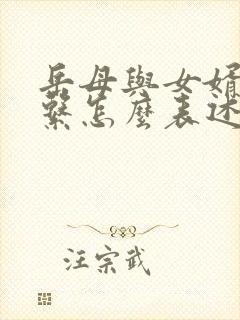 岳母與女婿
繫怎麼表述
汪宗武